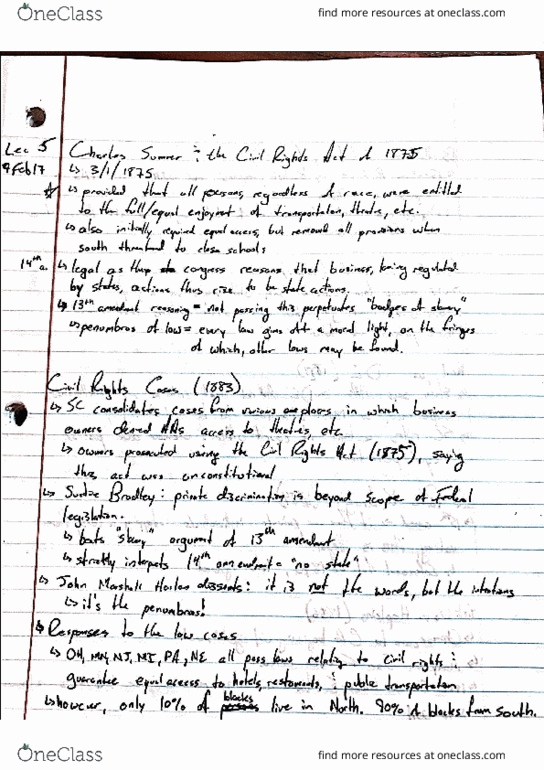 OneClass
find more resources at oneclass.com
Lec 5 Charles Sumner & the Civil Rights Act of 1875
9Feb17 ↳ 3/1/1875
☆ ↳ provided that all persons, regardless of race, were entitled
to the full/equal enjoyment of transportation, theatre, etc.
↳ also initially required equal access, but removed all provisions when
south threatened to close schools
14th a. ↳ legal as congress reasons that business, being regulated
by states, actions thus rise to be state actions.
↳ 13th amendment reasoning = not passing this perpetuates "badges of slavery"
↳ penumbras of law = every law gives off a moral light, on the fringes
of which, other laws may be found.
Civil Rights Cases (1883)
↳ SC consolidates cases from various places in which business
owners denied AAs access to theatres, etc.
↳ owners prosecuted using the Civil Rights Act (1875), saying
the act was unconstitutional
↳ Justice Bradley: private discrimination is beyond scope of Federal
legislation.
↳ "slavery" argument of 13th amendment
↳ strictly interprets 14th amendment = "no state"
↳ John Marshall Harlan dissents: it is not the words, but the intentions
↳ it's the penumbras!
↳ Responses to the law cases
↳ OH, MN, NJ, MI, PA, NE all pass laws relating to civil rights &
guarantee equal access to hotels, restaurants, & public transportation
↳ however, only 10% of blacks live in North. 90% of blacks from South.
OneClass
find more resources at oneclass.com